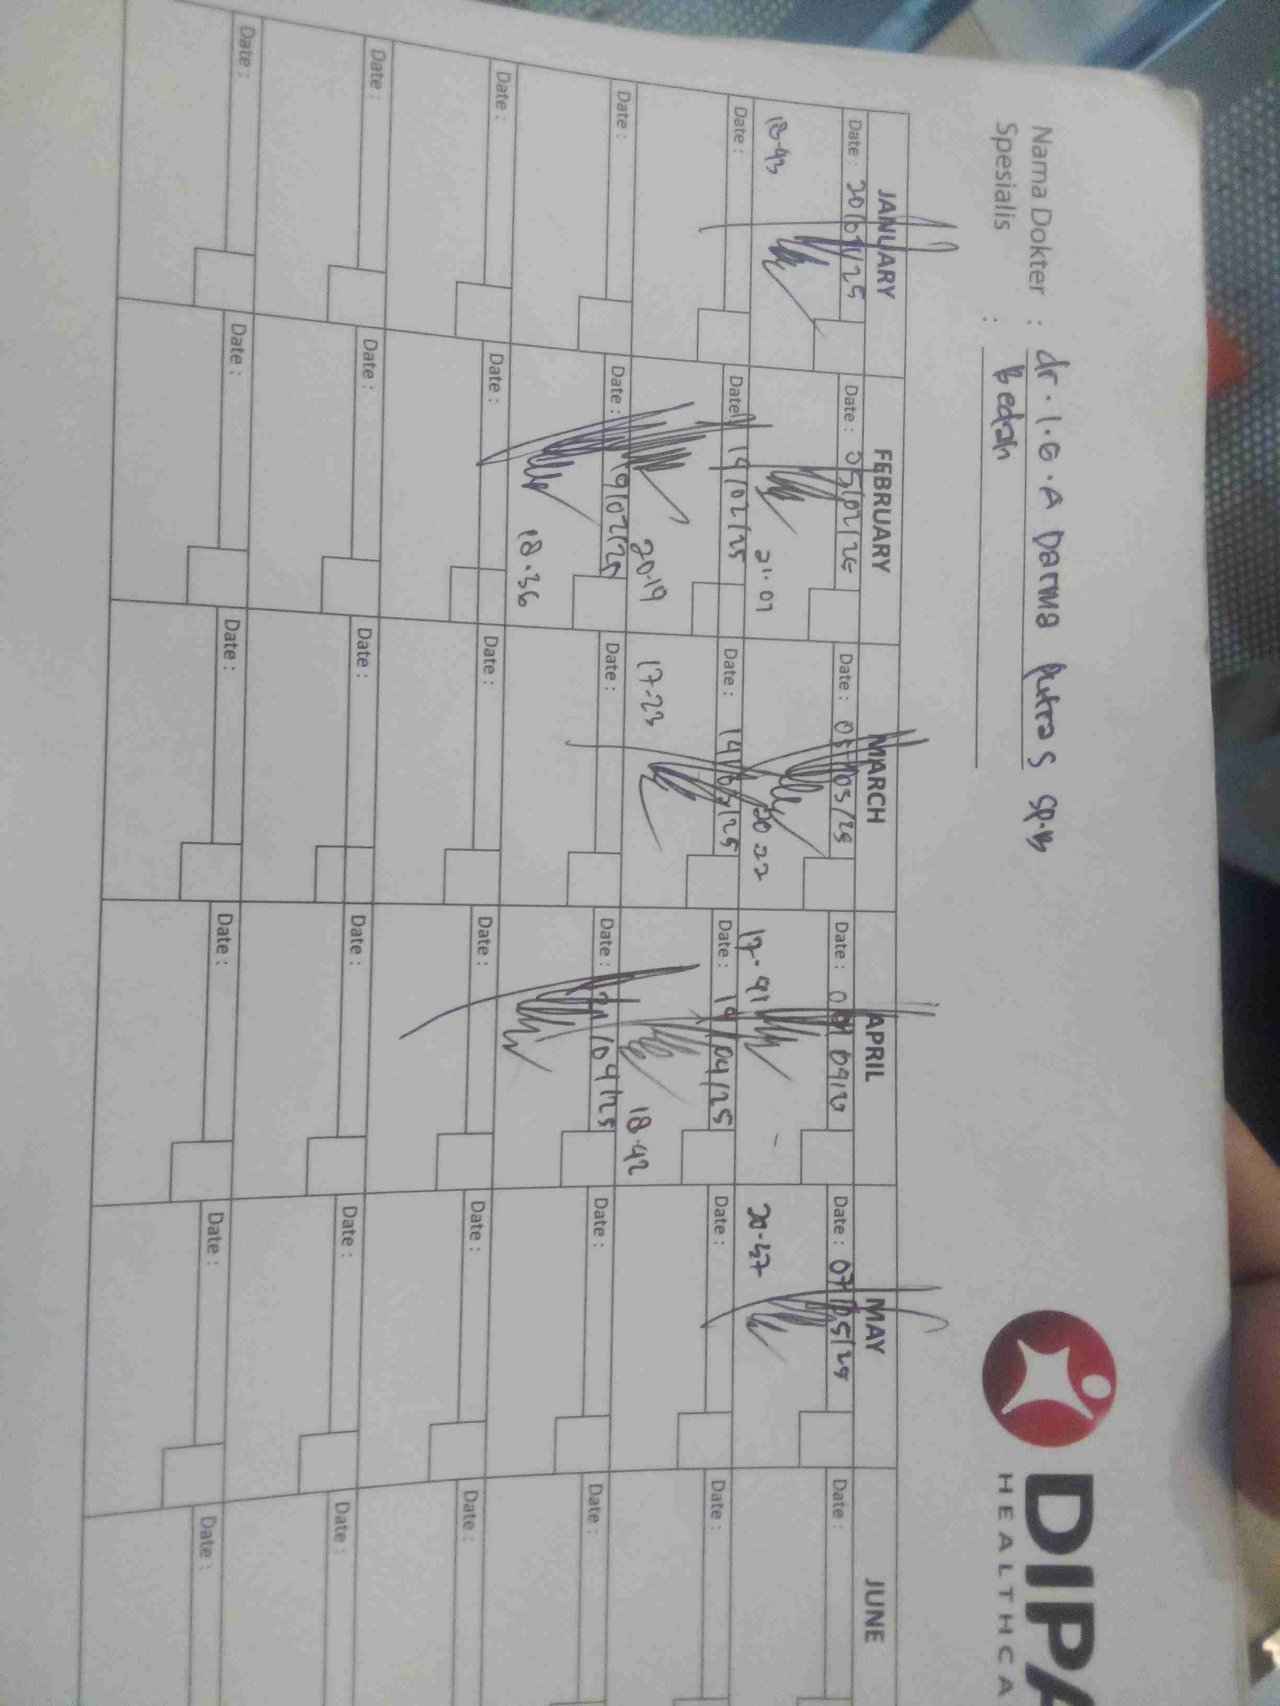 Nama Dokter : dr. I.G.A Darma Putra S Sp.B
Spesialis : Bedah
DIPA
HEALTHCA
JANUARY FEBRUARY MARCH APRIL MAY JUNE
Date : 20/01/25 Date : 05/02/25 Date : 05/03/25 Date : Date : 07/05/25 Date :
18-43 21.07 20 22 17.41 20.47
Date : Date : 14/02/25 Date : 14/03/25 Date : 14/04/25 Date : Date :
20.19 17.23 18.42
Date : Date : 19/02/25 Date : Date : 21/04/25 Date : Date :
18.36
Date : Date : Date : Date : Date : Date :
Date : Date : Date : Date : Date : Date :
Date : Date : Date : Date : Date : Date :